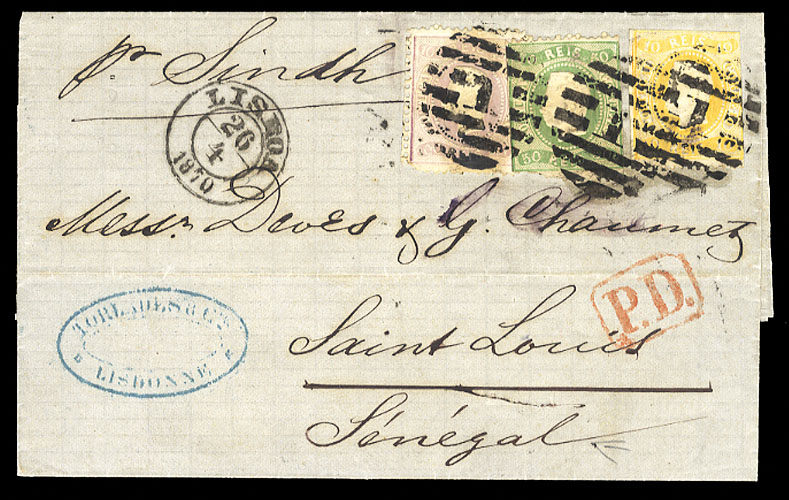 pr Sindh
LISBOA
26
4
1870
50 REIS
10 REIS 10
Messrs Deves & G. Chaumet
P.D.
TORLADES & Cie
LISBONNE
Saint Louis
Sénégal